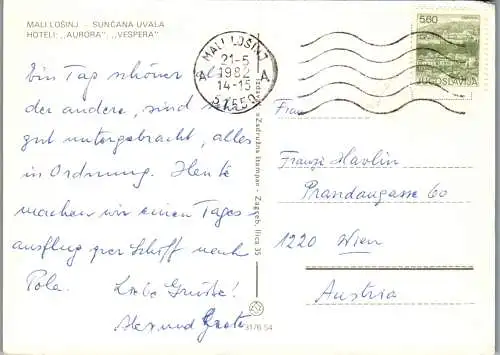 MALI LOŠINJ - SUNČANA UVALA
HOTELI: „AURORA”, „VESPERA”
Ein Tag schöner als
der andere, sind
gut untergebracht, alles
in Ordnung. Heute
machen wir einen Tages-
ausflug per Schiff nach
Pola.
Liebe Grüße!
und
MALI LOŠINJ
21-5
A 1982 A
14-15
51550
5,60
JUGOSLAVIJA
Frau
Franze Havlin
Prandaugasse 60
1220 Wien
Austria
Zadružna štampa - Zagreb, Ilica 35
3176 54